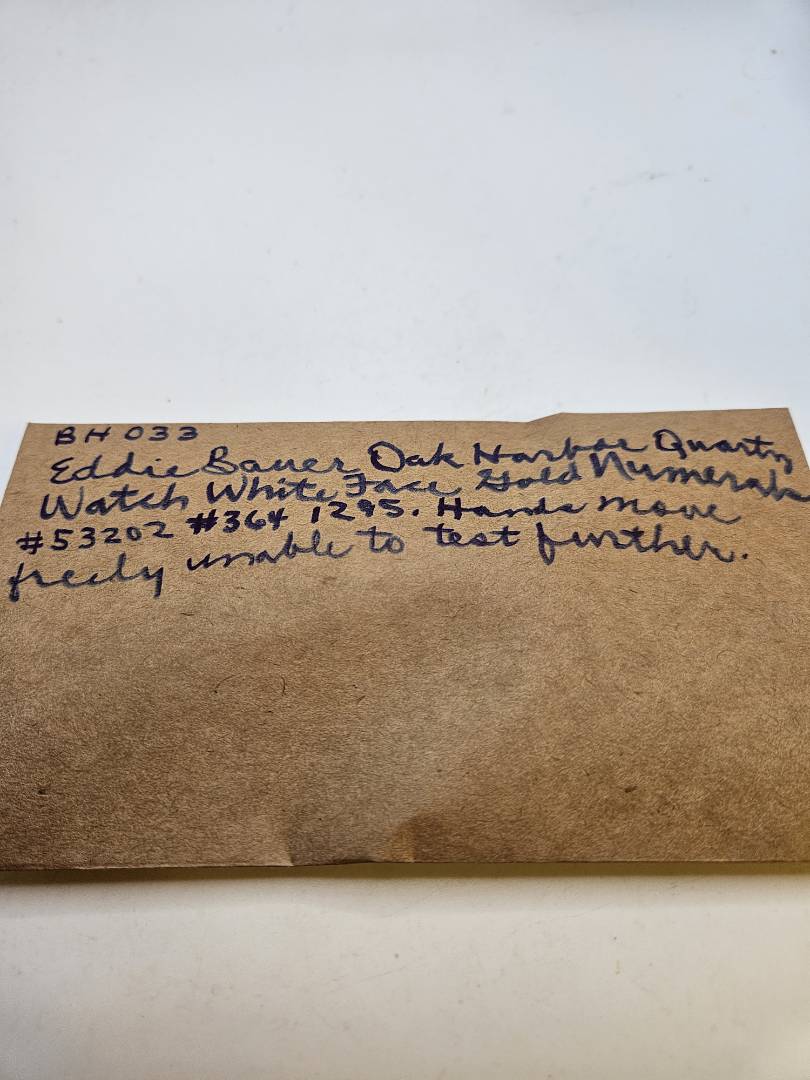 BH 033
Eddie Bauer Oak Harbor Quartz
Watch White Face Gold Numerals
#53202 #364 1295. Hands move
freely unable to test further.